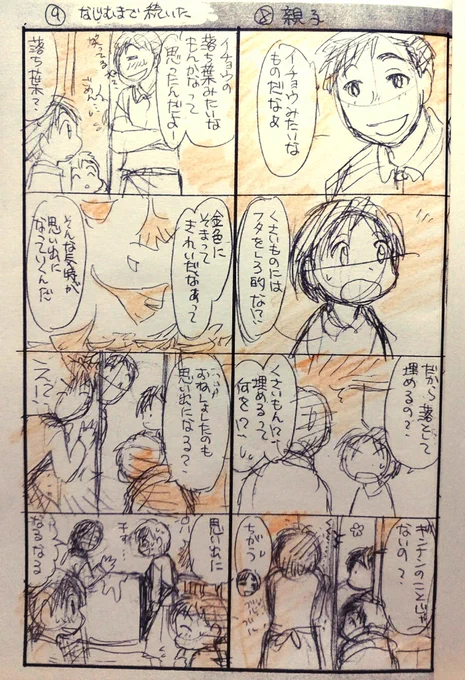 ⑧ 親子
イチョウみたいな
ものだなぁ
くさいものには
フタをしろ的な?
だから落として
埋めるの?
くさいもん!?
埋めるって
何を!?
ギンナンのことじゃ
ないの?
ちがう
⑨ なじむまで続いた
イチョウの
落ち葉みたいな
もんかなって
思ったんだよー
ごめんー
落ち葉?
金色に
そまって
きれいだなぁって
そんな気持ちが
思い出に
なっていくんだ
おねしょしたのも
思い出になる?
えっ
思い出に
なるなる